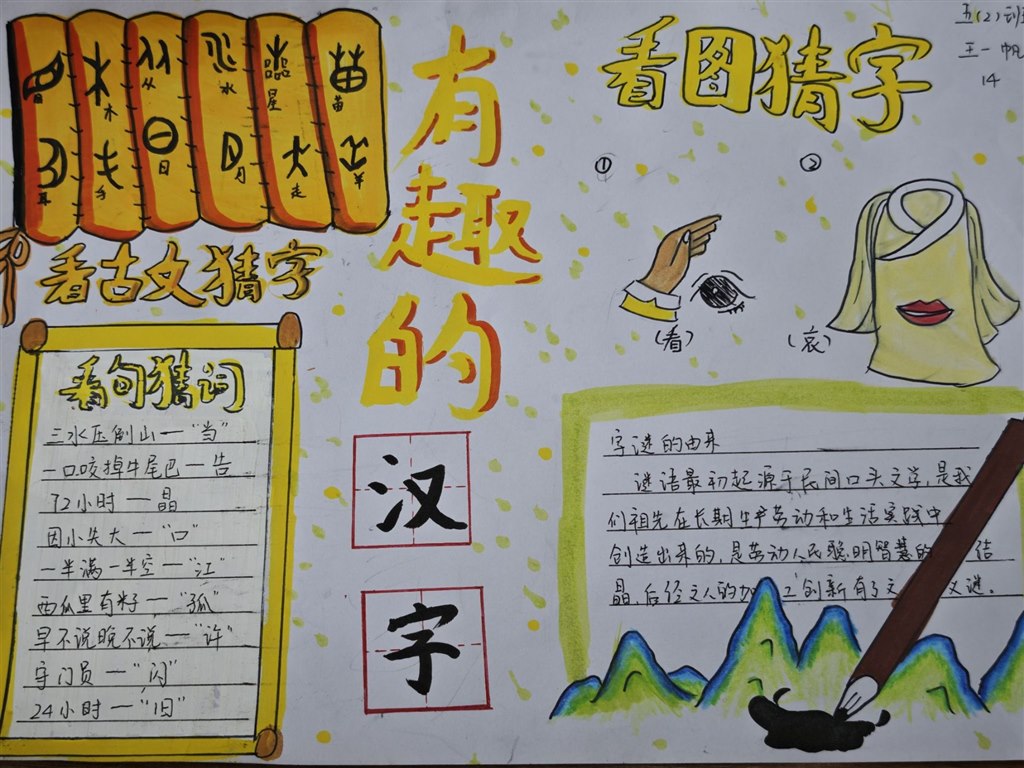 五(2)班
王一帆
14
有趣的
汉
字
从
水
星
苗
木
耳
手
日
月
走
羊
看古文猜字
看图猜字
①
②
(看)
(哀)
看句猜词
三水压倒山一"当"
一口咬掉牛尾巴一告
72小时一晶
因小失大一"口"
一半满一半空一"江"
西瓜里有籽一"孤"
早不说晚不说一"许"
守门员一"闪"
24小时一"旧"
字谜的由来
谜语最初起源于民间口头文学,是我
们祖先在长期生产劳动和生活实践中
创造出来的,是劳动人民聪明智慧的 结
晶,后经文人的加工 创新有了文 文谜。